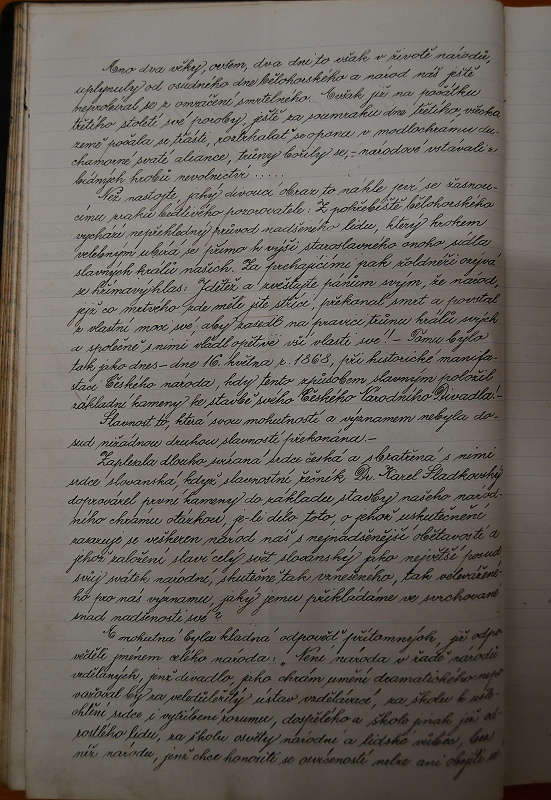 Ano dva věky, ovšem, dva dni to však v životě národů,
uplynuly od osudného dne bělohorského a národ náš ještě
neprobíral se z omráčení smrtelného. Avšak již na počátku
třetího století své poroby, ještě za soumraku dne třetího, všecka
země počala se třásti, roztrhala se opona v modlochrámu du-
chamorné svaté aliance, trůny bořily se, – národové vstávali z
bídných hrobů nevolnictví .....
Než nastojte, jaký divoucí obraz to náhle jeví se žasnou-
címu zraku bedlivého pozorovatele: Z pohřebiště bělohorského
vychází nepřehledný průvod nadšeného lidu, který krokem
velebným ubírá se přímo k výši staroslavného onoho sídla
slavných králů našich. Za prchajícími pak žoldnéři ozývá
se hřímavý hlas: Jděte a zvěstujte pánům svým, že národ,
jejž co mrtvého zde měli jste stříci, překonal smrt a povstal
z vlastní moci své, aby zasedl na pravici trůnu králů svých
a společně s nimi vládl opětně vší vlasti své! – Tomu bylo
tak jako dnes – dne 16. května r. 1868, při historické manifa-
staci Českého národa, kdy tento způsobem slavným položil
základní kameny ke stavbě svého Českého Národního Divadla! –
Slavnost to, která svou mohutností a významem nebyla do-
sud nižádnou druhou slavností překonána. –
Zaplesala dlouho svíraná srdce česká a sbratřená s nimi
srdce slovanská, když slavnostní řečník Dr. Karel Sladkovský
doprovázel první kameny do základu stavby našeho národ-
ního chrámu otázkou, je-li dílo toto, o jehož uskutečnění
zasazuje se veškeren národ náš s nejnadšenější obětavostí a
jehož založení slaví celý svět slovanský jako největší posud
svůj svátek národní, skutečně tak vznešeného, tak velevážené-
ho pro nás významu, jaký jemu přikládáme ve svrchované
snad nadšenosti své?
A mohutná byla kladná odpověď přítomných, již odpo-
věděli jménem celého národa: „Není národa v řadě národů
vzdělaných, jenž divadlo, jako chrám umění dramatického nepo-
važoval by za veledůležitý ústav vzdělávací, za školu k ušle-
chtění srdce i vytříbení rozumu, dospělého a škole jinak již od-
rostlého lidu, za školu osvěty národní a lidské vůbec, bez
níž národu, jenž chce honositi se osvíceností nelze ani obejíti se